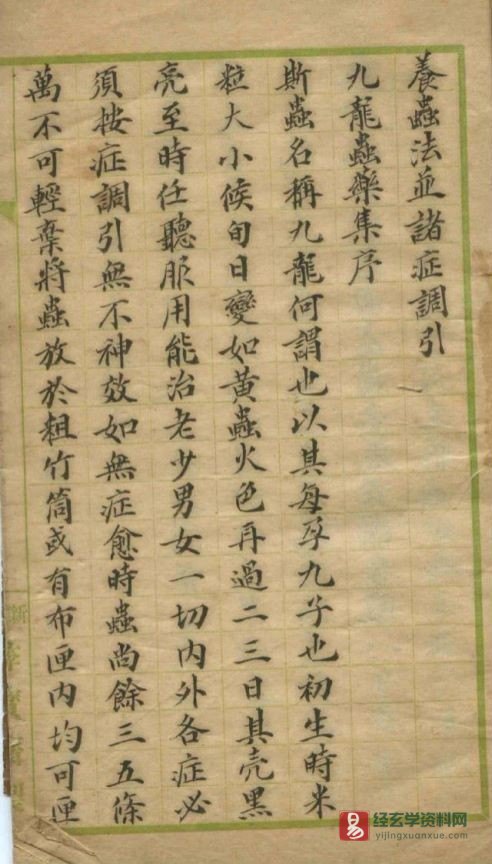 養蟲法並諸症調引
九龍蟲藥集序
斯蟲名稱九龍何謂也以其每孕九子也初生時米
粒大小候旬日變如黃蟲火色再過二三日其壳黑
亮至時任聽服用能治老少男女一切内外各症必
須按症調引無不神效如無症愈時蟲尚餘三五條
萬不可輕棄將蟲放於粗竹筒或有布匣内均可匣
易
经玄学资料网
yijingxuanxue.com